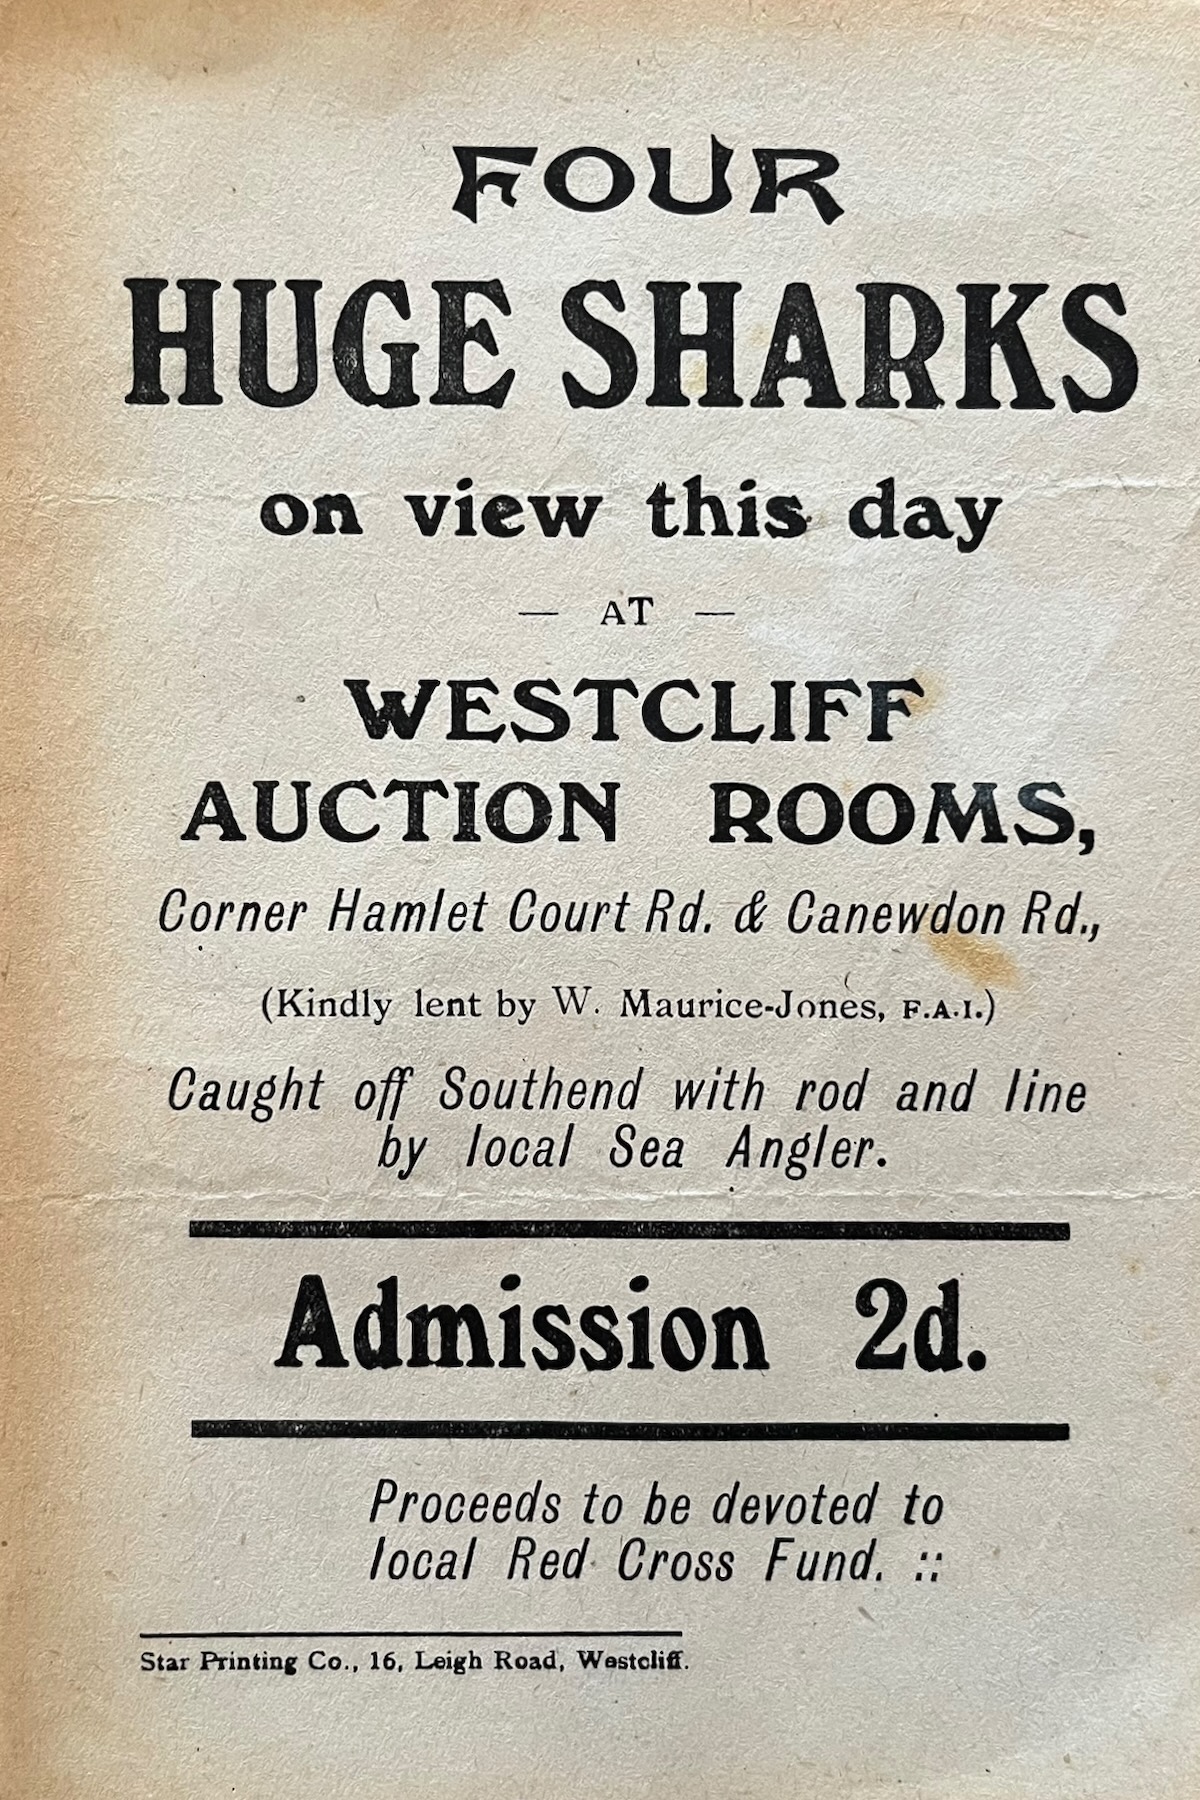 FOUR
HUGE SHARKS
on view this day
— AT —
WESTCLIFF
AUCTION ROOMS,
Corner Hamlet Court Rd. & Canewdon Rd.,
(Kindly lent by W. Maurice-Jones, F.A.I.)
Caught off Southend with rod and line
by local Sea Angler.
Admission 2d.
Proceeds to be devoted to
local Red Cross Fund. ::
Star Printing Co., 16, Leigh Road, Westcliff.